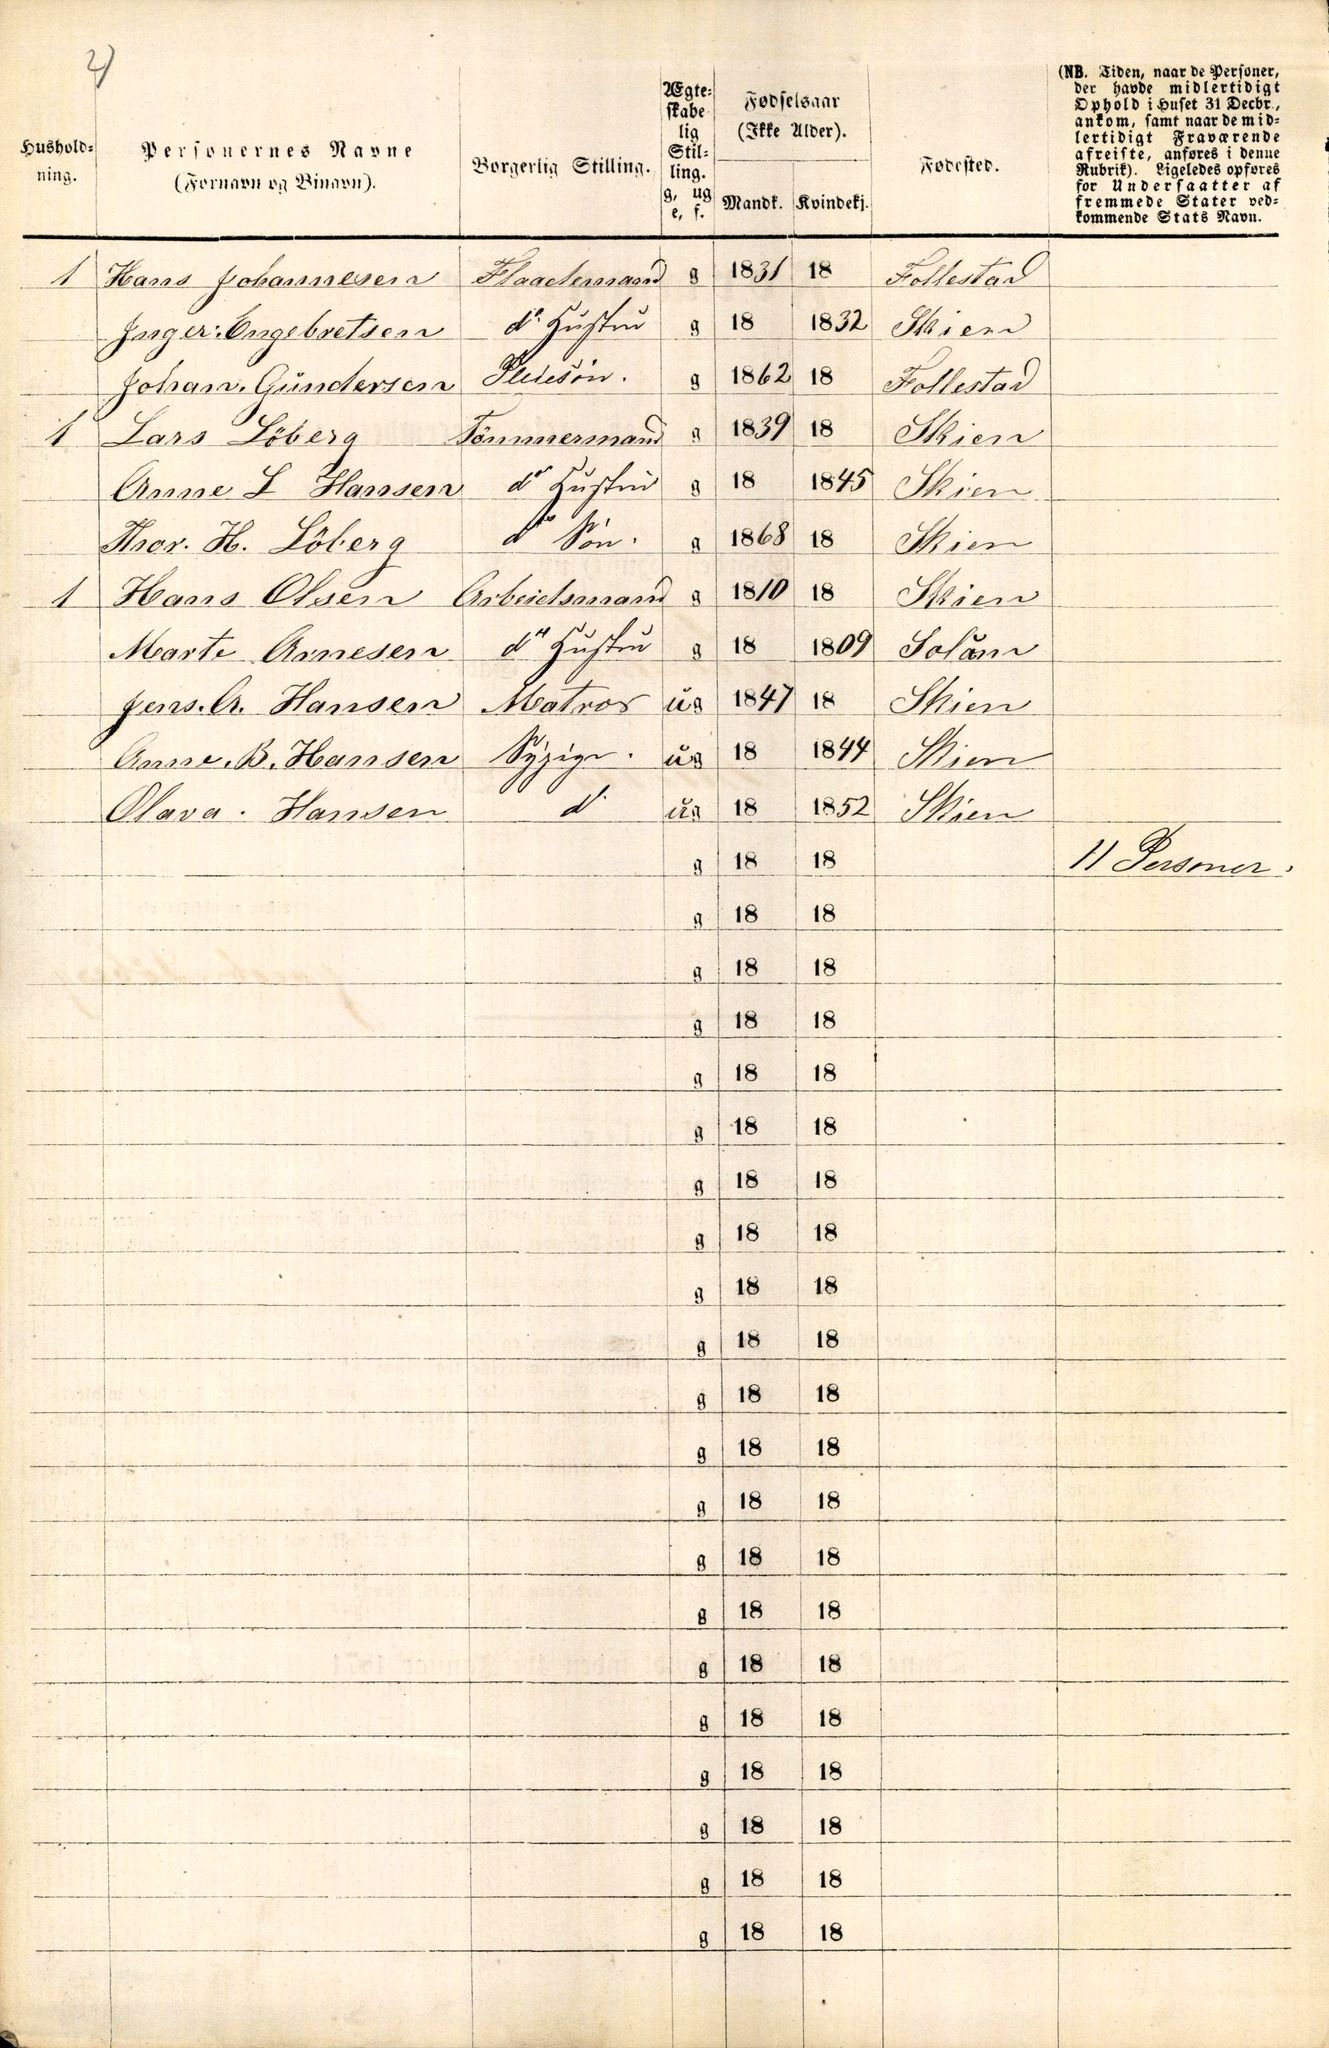 2)
Hushold-
ning.
Personernes Navne
(Fornavn og Binavn).
Borgerlig Stilling.
Ægte-
skabe
lig
Stil-
ling.
g, ug
e, f.
Fødselsaar
(Ikke Alder).
Mandk. Kvindekj.
Fødested.
(NB. Tiden, naar de Personer,
der havde midlertidigt
Ophold i Huset 31 Decbr.,
ankom, samt naar de mid-
lertidigt Fraværende
afreiste, anføres i denne
Rubrik). Ligeledes opføres
for Undersaatter af
fremmede Stater ved-
kommende Stats Navn.
1 Hans Johannesen Flaademand g 1831 18 Follestad
Inger. Engebretsen do Hustru g 18 1832 Skien
Johan. Gundersen Pleiesön. g 1862 18 Follestad
1 Lars Löberg Tömmermand g 1839 18 Skien
Anne L Hansen do Hustru g 18 1845 Skien
Thor. H. Löberg do Sön. g 1868 18 Skien
1 Hans Olsen Arbeidsmand g 1810 18 Skien
Marte Arnesen do Hustru g 18 1809 Solum
Jens. A. Hansen Matros ug 1847 18 Skien
Anne. B. Hansen Sypige. ug 18 1844 Skien
Olava. Hansen do ug 18 1852 Skien
g 18 18 11 Personer.
g 18 18
g 18 18
g 18 18
g 18 18
g 18 18
g 18 18
g 18 18
g 18 18
g 18 18
g 18 18
g 18 18
g 18 18
g 18 18
g 18 18
g 18 18
g 18 18
g 18 18
g 18 18
g 18 18
g 18 18